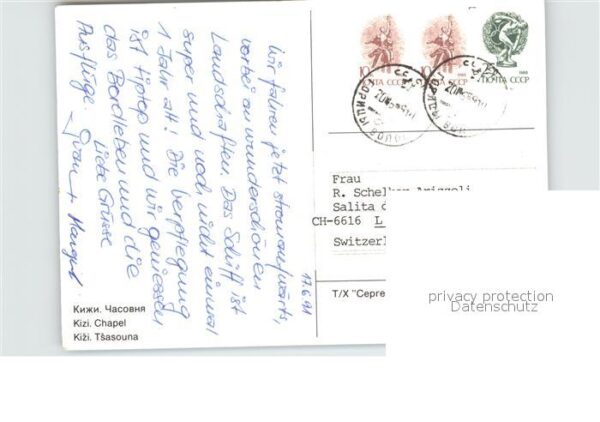 17.6.91
Wir fahren jetzt stromaufwärts,
vorbei an wunderschönen
Landschaften. Das Schiff ist
super und noch nicht einmal
1 Jahr alt! Die Verpflegung
ist tiptop und wir geniessen
das Bordleben und die
Ausflüge.
Liebe Grüsse
10
ПОЧТА СССР
1988
10
ПОЧТА СССР
1988
ПОЧТА СССР
1988
Frau
R. Schelker
Salita d
CH-6616 L
Switzerl
Кижи. Часовня
Kizi. Chapel
Kiži. Tšasouna
Т/Х "Серге
privacy protection
Datenschutz